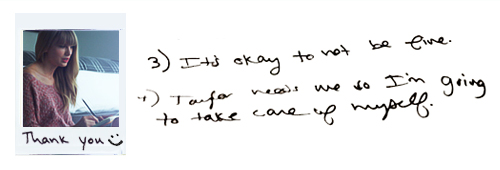 3) It's okay to not be fine.
4) Taylor needs me so I'm going
to take care of myself.
Thank you :)